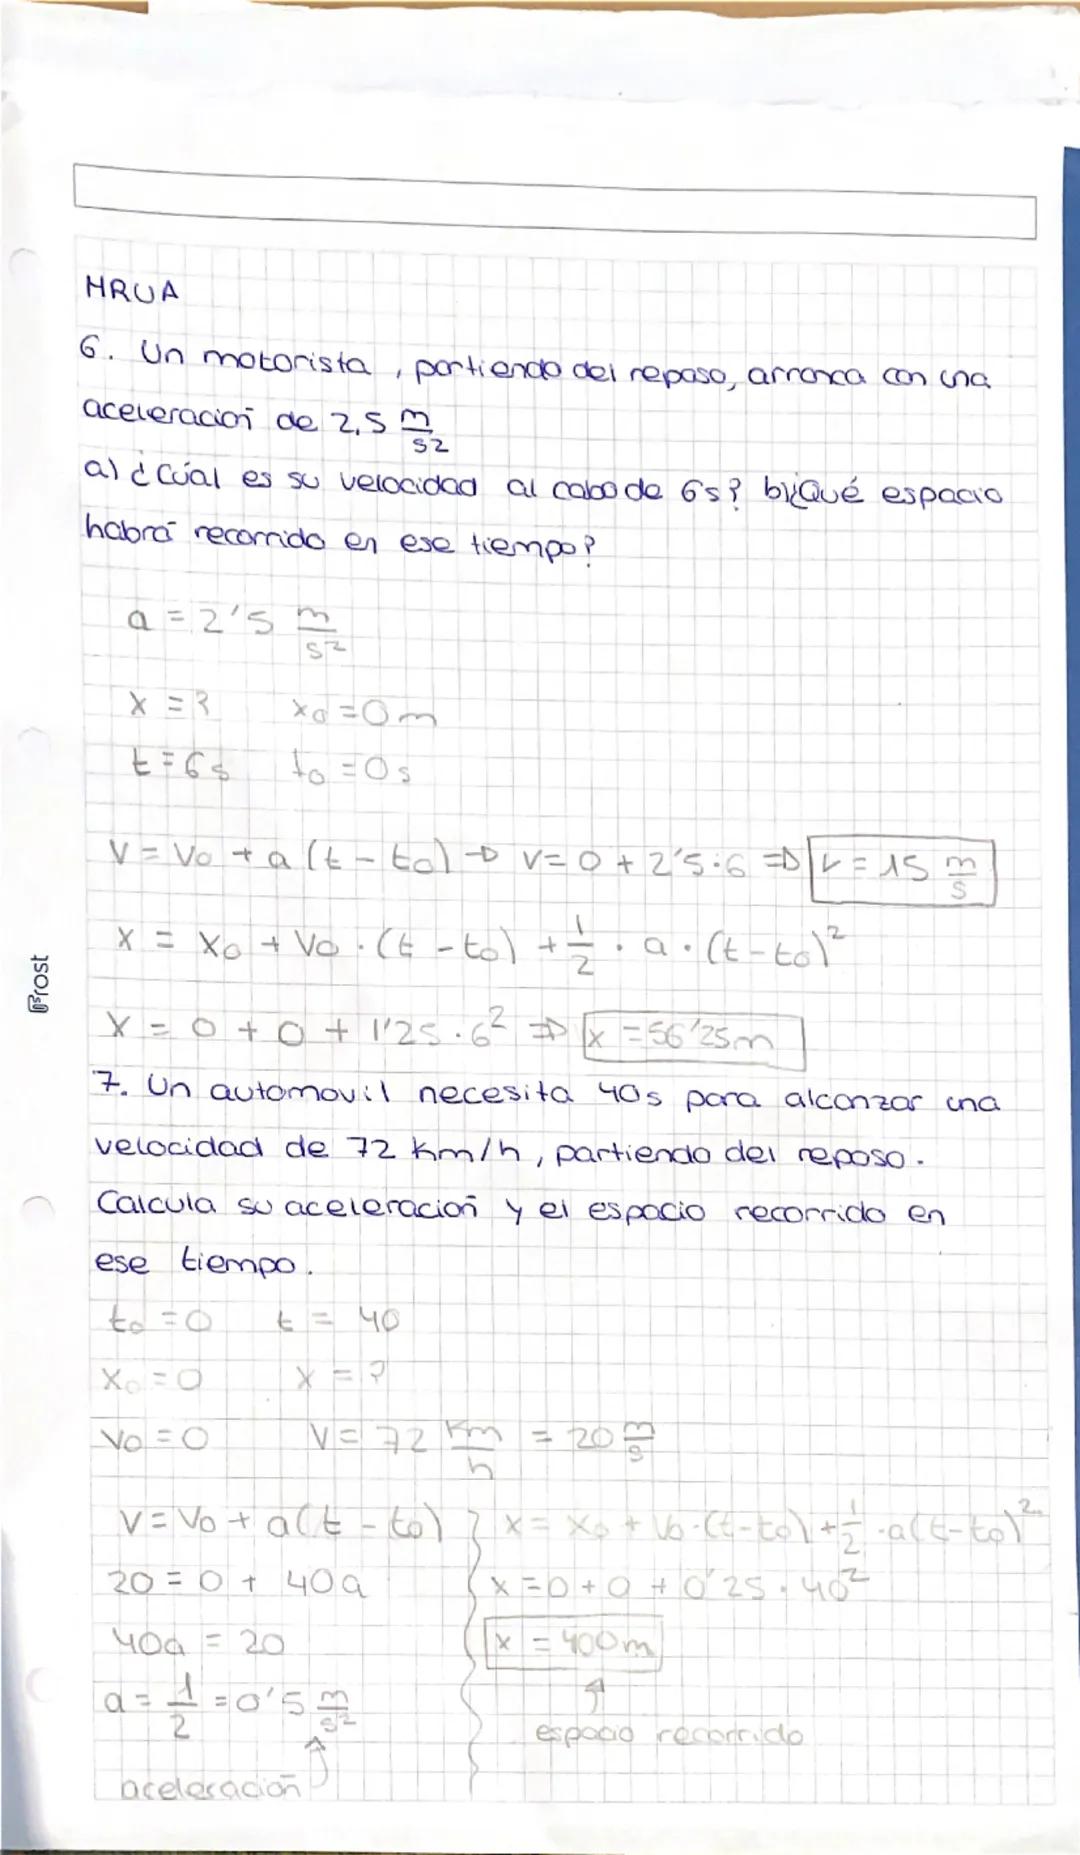 MRUA
6. Un motorista, partiendo del reposo, arranca con una
aceleración de 2,5 m/s2
a) ¿Cúal es su velocidad al cabo de 6s? b)¿Qué espacio
habrá recorrido en ese tiempo?
a = 2'5 m/s²
x = ? x₀ = 0 m
t = 6s t₀ = 0 s
V = V₀ + a (t - t₀) → v = 0 + 2'5·6 ⇒ v = 15 m/s
x = x₀ + V₀ · (t - t₀) + 1/2 · a · (t - t₀)²
x = 0 + 0 + 1'25 · 6² ⇒ x = 56'25m
7. Un automovil necesita 40s para alcanzar una
velocidad de 72 Km/h, partiendo del reposo.
Calcula su aceleración y el espacio recorrido en
ese tiempo.
t₀ = 0 t = 40
x₀ = 0 x = ?
V₀ = 0 V = 72 Km/h = 20 m/s
V = V₀ + a(t - t₀) x = x₀ + V₀·(t-t₀) + 1/2 · a(t-t₀)²
20 = 0 + 40a x = 0 + 0 + 0'25 · 40²
40a = 20 x = 400m
a = 1/2 = 0'5 m/s² ↑
↑ espacio recorrido
aceleración
Frost